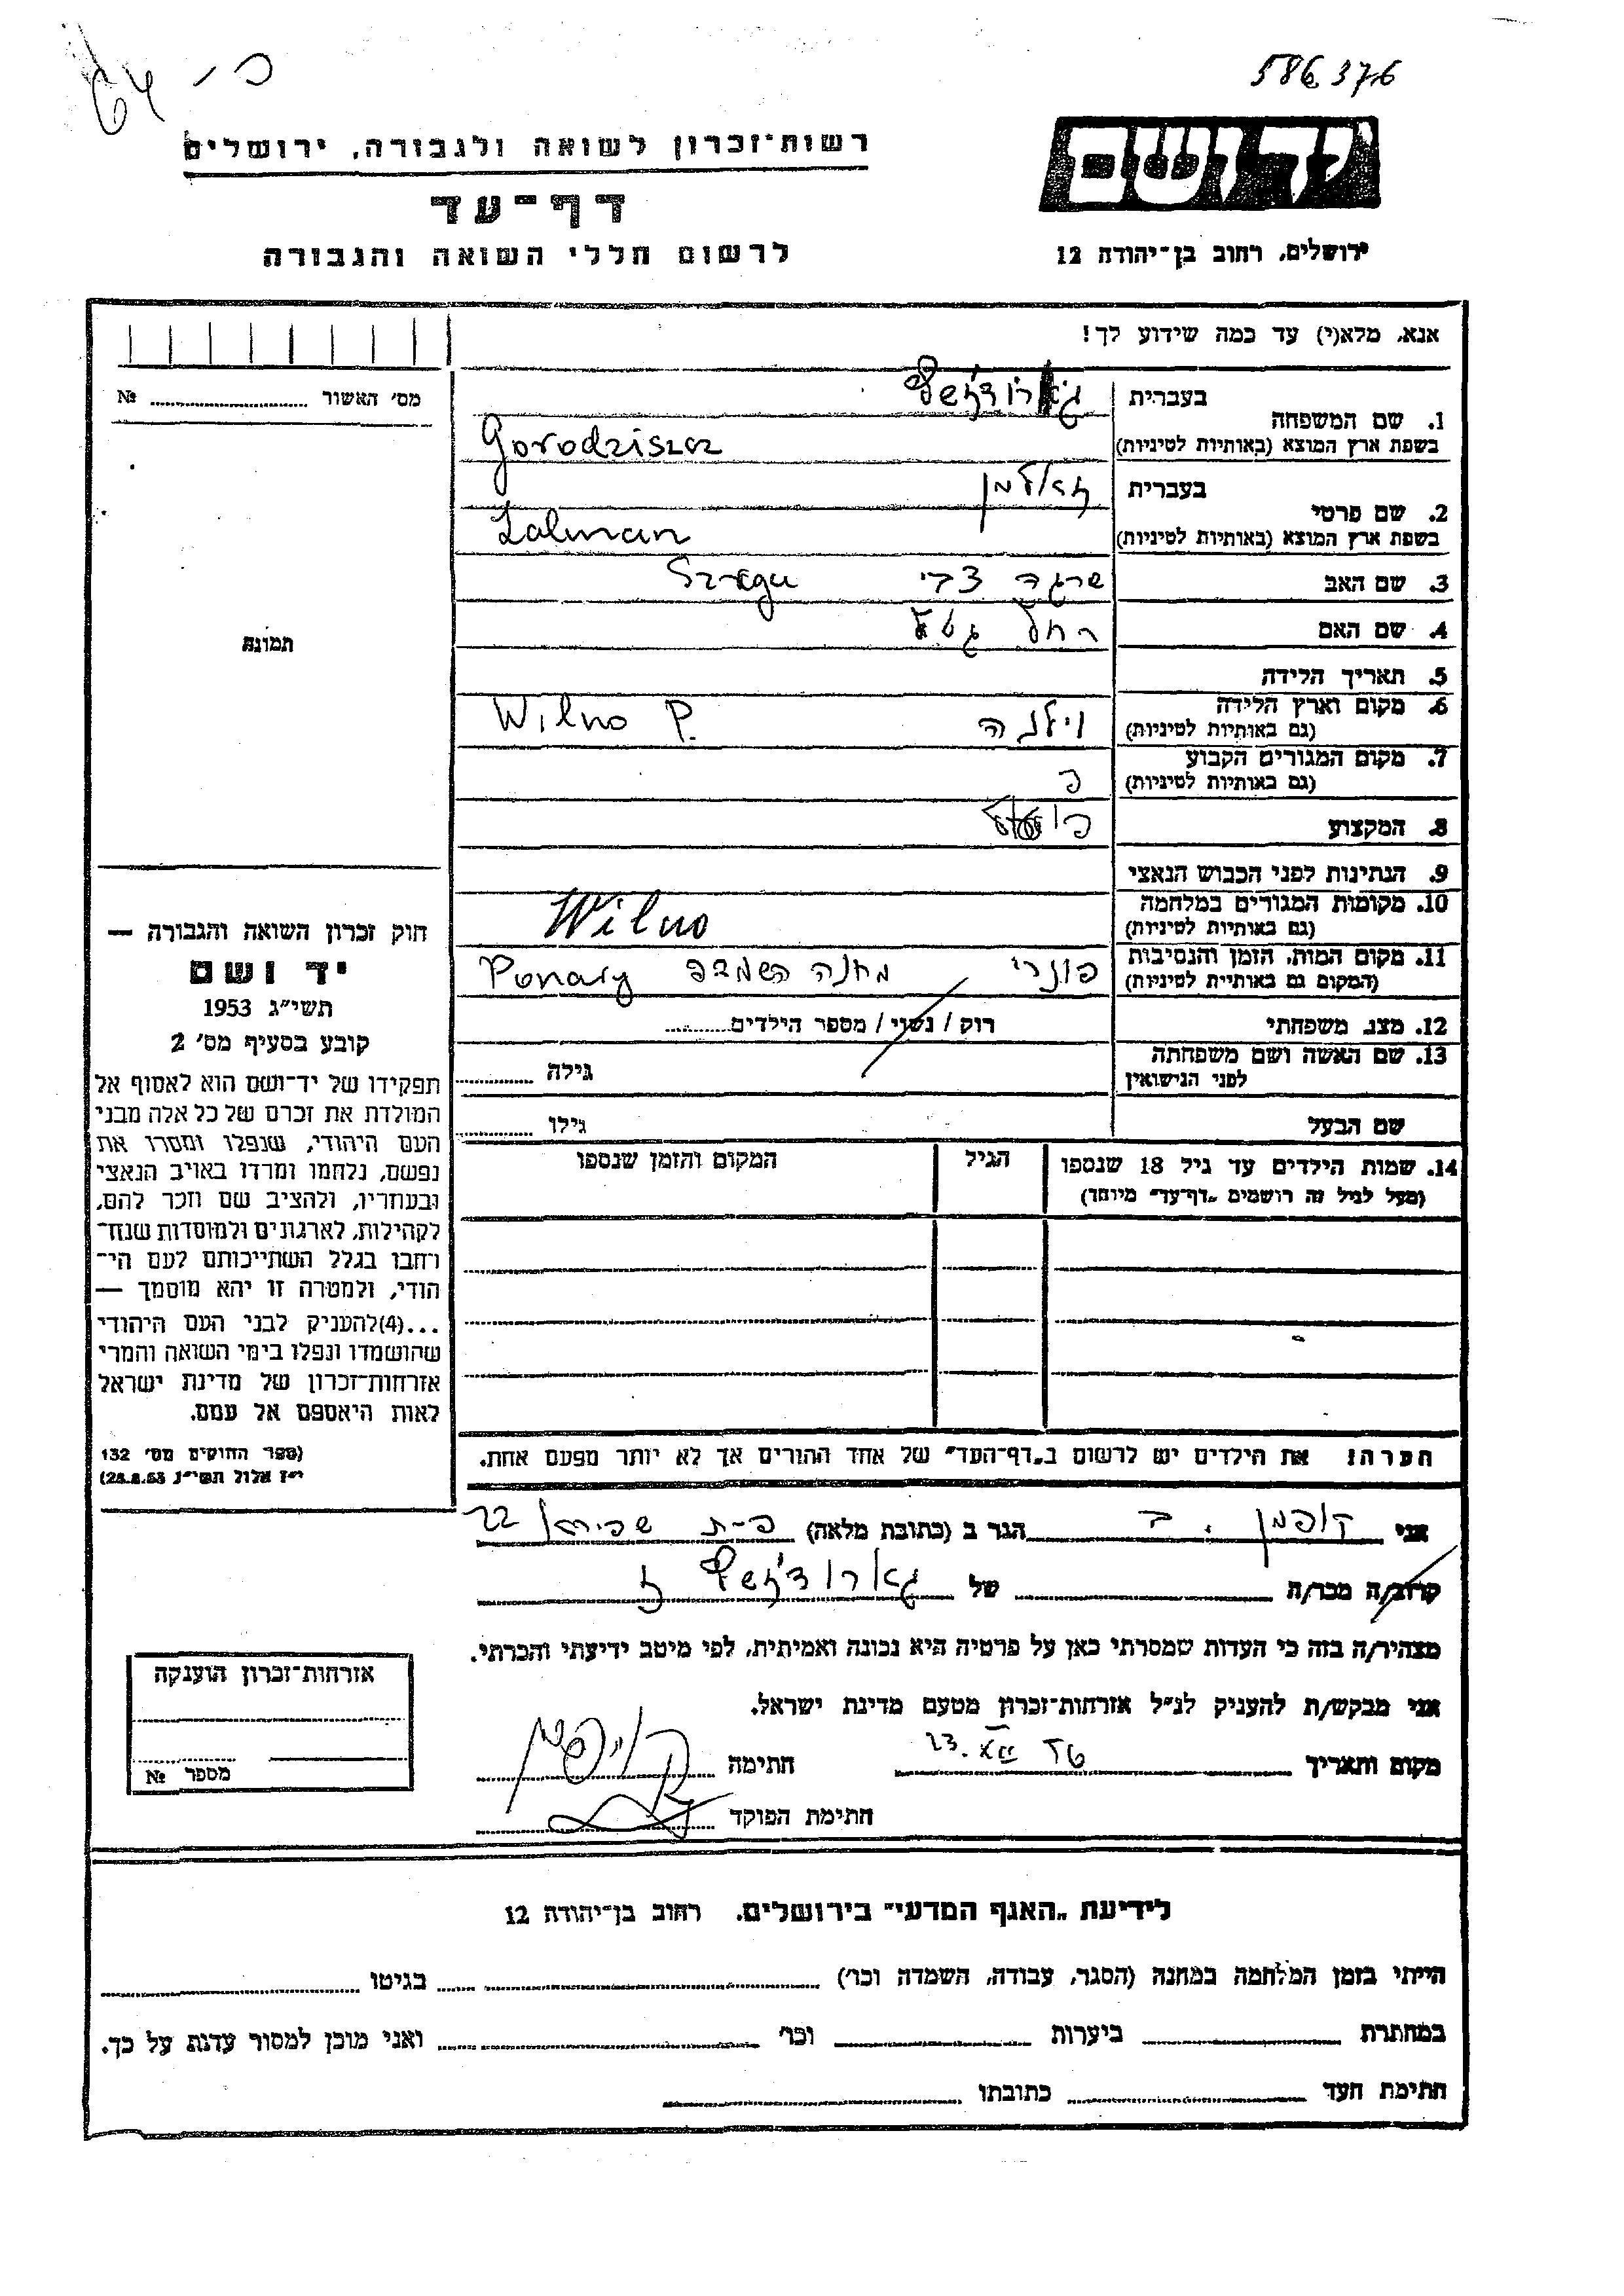 586376
64 - כ
יד ושם
רשות־זכרון לשואה ולגבורה, ירושלים
דף־עד
לרשום חללי השואה והגבורה
ירושלים, רחוב בן־יהודה 12
אנא, מלא(י) עד כמה שידוע לך!
מס' האשור № 
תמונה
1. שם המשפחה בעברית
בשפת ארץ המוצא (באותיות לטיניות) Gorodziszcz
2. שם פרטי בעברית זאלמן
בשפת ארץ המוצא (באותיות לטיניות) Zalman
3. שם האב שרגה צבי Szraga
4. שם האם רחל גיטל
5. תאריך הלידה
6. מקום וארץ הלידה וילנה Wilno P.
(גם באותיות לטיניות)
7. מקום המגורים הקבוע
(גם באותיות לטיניות)
8. המקצוע
9. הנתינות לפני הכבוש הנאצי
10. מקומות המגורים במלחמה Wilno
(גם באותיות לטיניות)
11. מקום המות, הזמן והנסיבות פונרי מחנה השמדה Ponary
(המקום גם באותיות לטיניות)
12. מצב משפחתי רוק / נשוי / מספר הילדים
13. שם האשה ושם משפחתה גילה
לפני הנישואין
שם הבעל גילו
14. שמות הילדים עד גיל 18 שנספו הגיל המקום והזמן שנספו
(מעל לגיל זה רושמים „דף־עד" מיוחד)
הערה! את הילדים יש לרשום ב„דף־העד" של אחד ההורים אך לא יותר מפעם אחת.
חוק זכרון השואה והגבורה —
יד ושם
תשי"ג 1953
קובע בסעיף מס' 2
תפקידו של יד־ושם הוא לאסוף אל
המולדת את זכרם של כל אלה מבני
העם היהודי, שנפלו ומסרו את
נפשם, נלחמו ומרדו באויב הנאצי
ובעוזריו, ולהציב שם וזכר להם,
לקהילות, לארגונים ולמוסדות שנח־
רחבו בגלל השתייכותם לעם הי־
הודי, ולמטרה זו יהא מוסמך —
...(4)להעניק לבני העם היהודי
שהושמדו ונפלו בימי השואה והמרי
אזרחות־זכרון של מדינת ישראל
לאות היאספם אל עמם.
(ספר החוקים מס' 132
י"ז אלול תשי"ג, 28.8.53)
אני קופמן ב. הגר ב (כתובת מלאה) 22
קרוב/ה מכר/ה של
מצהיר/ה בזה כי העדות שמסרתי כאן על פרטיה היא נכונה ואמיתית, לפי מיטב ידיעתי והכרתי.
אני מבקש/ת להעניק לנ"ל אזרחות־זכרון מטעם מדינת ישראל.
מקום ותאריך 23. XII חתימה
חתימת הפוקד
אזרחות־זכרון הוענקה
מספר №
לידיעת „האגף המדעי" בירושלים, רחוב בן־יהודה 12
הייתי בזמן המלחמה במחנה (הסגר, עבודה, השמדה וכו') בגיטו
במחתרת ביערות וכו' ואני מוכן למסור עדות על כך.
חתימת העד כתובתו